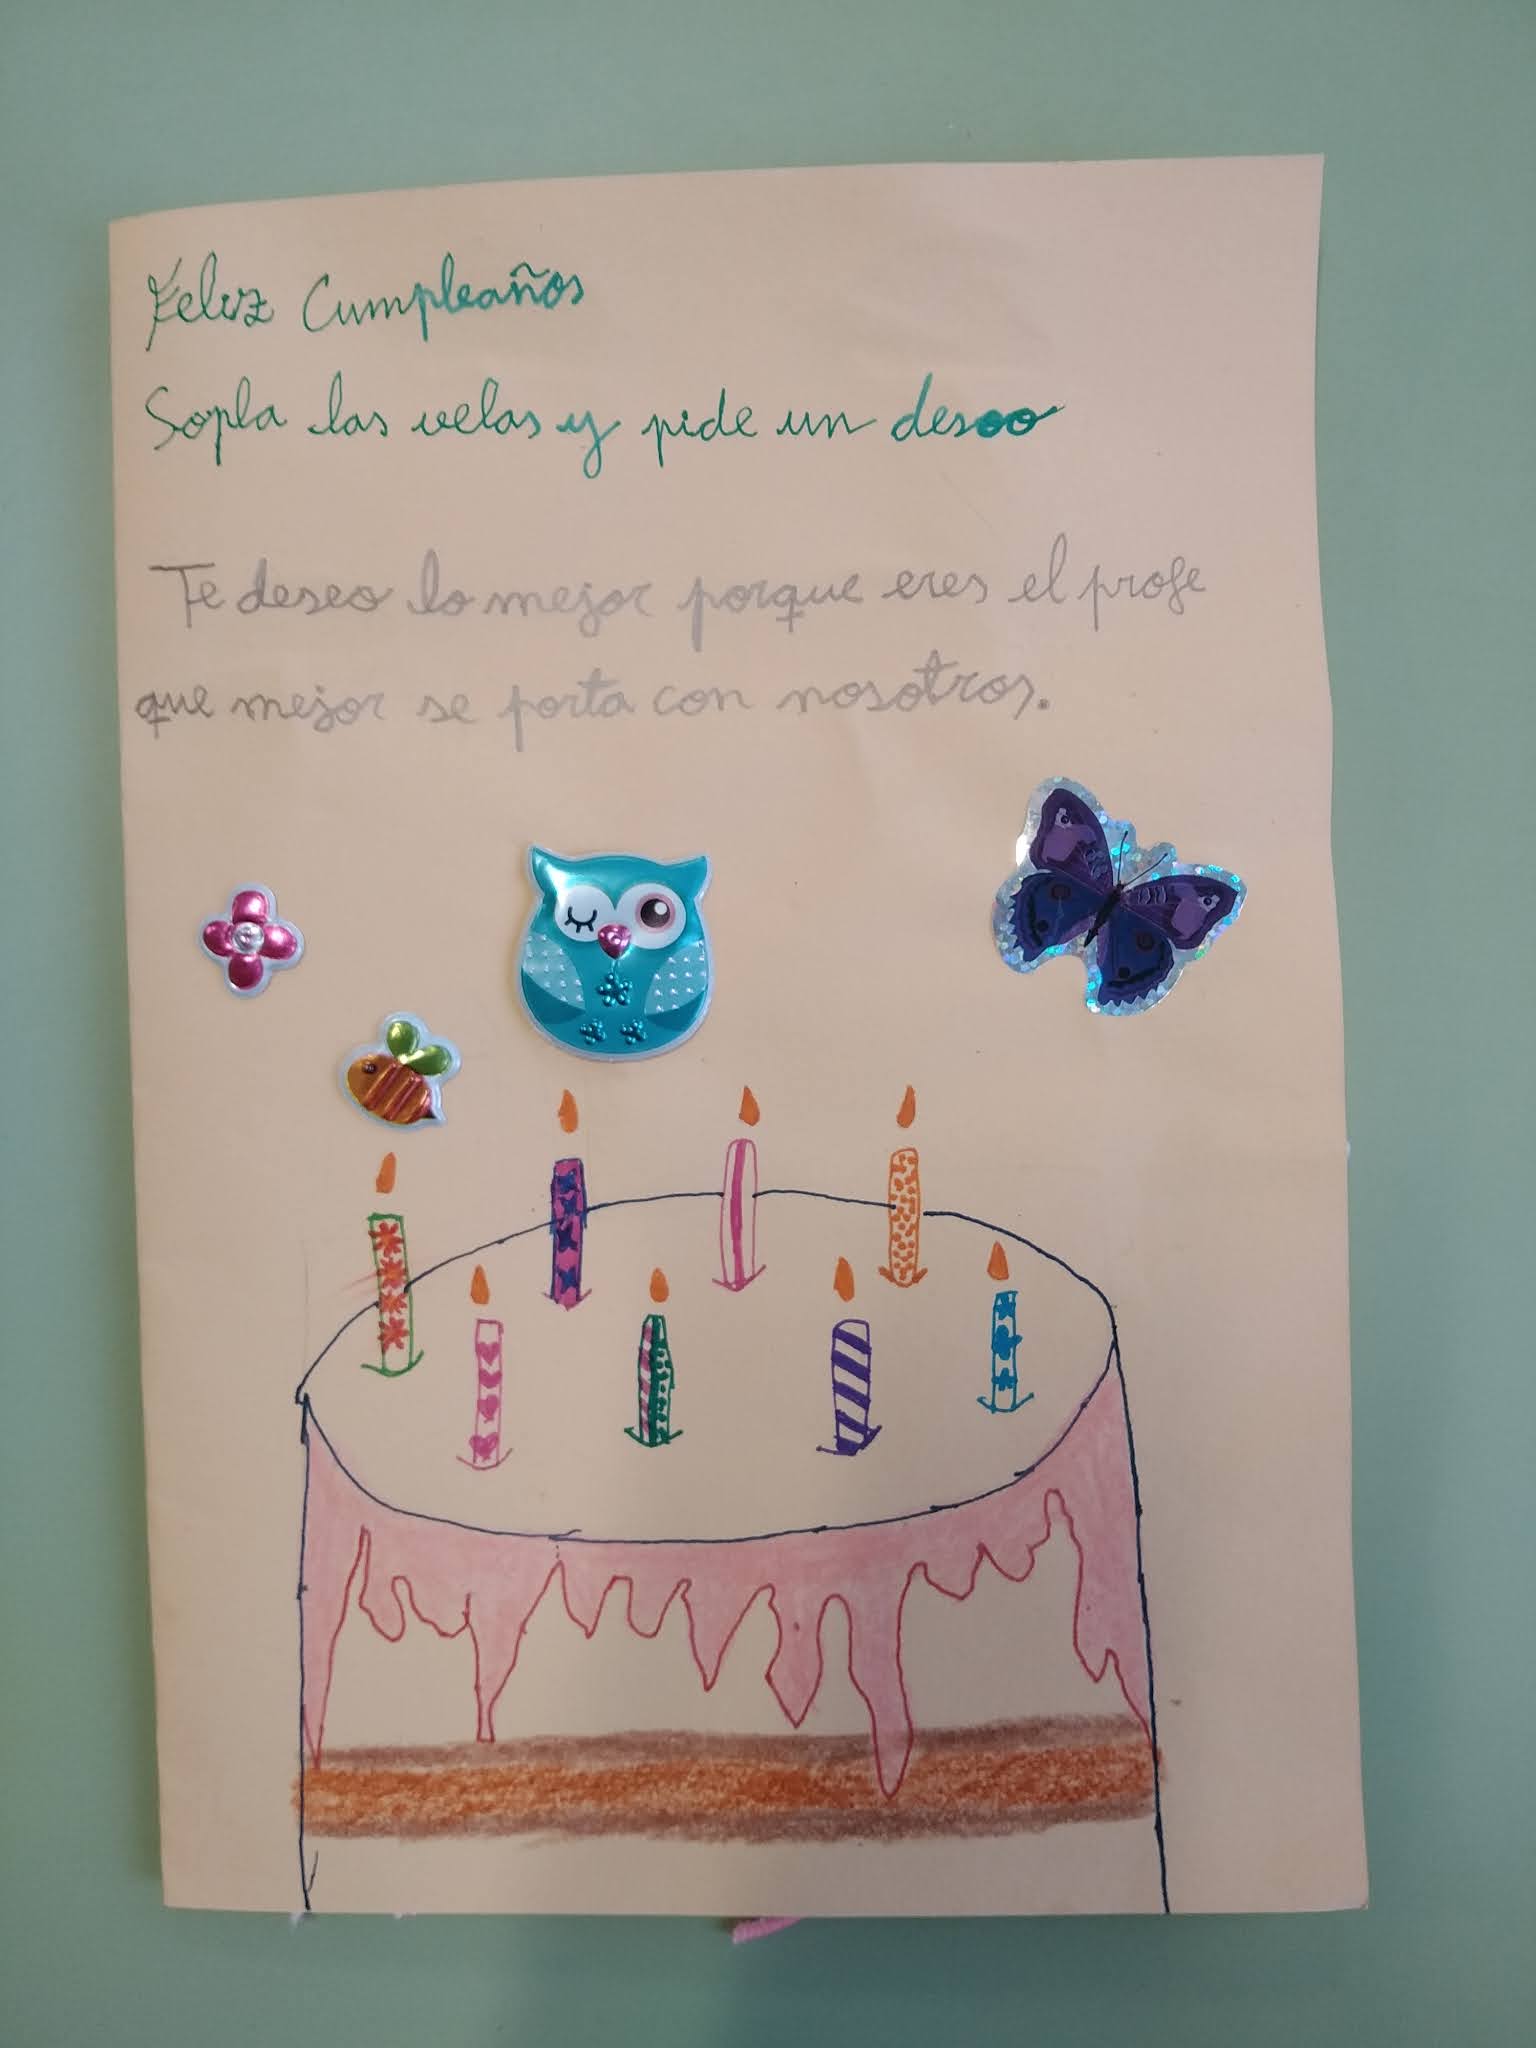 Feliz Cumpleaños
Sopla las velas y pide un deseo
Te deseo lo mejor porque eres el profe
que mejor se porta con nosotros.